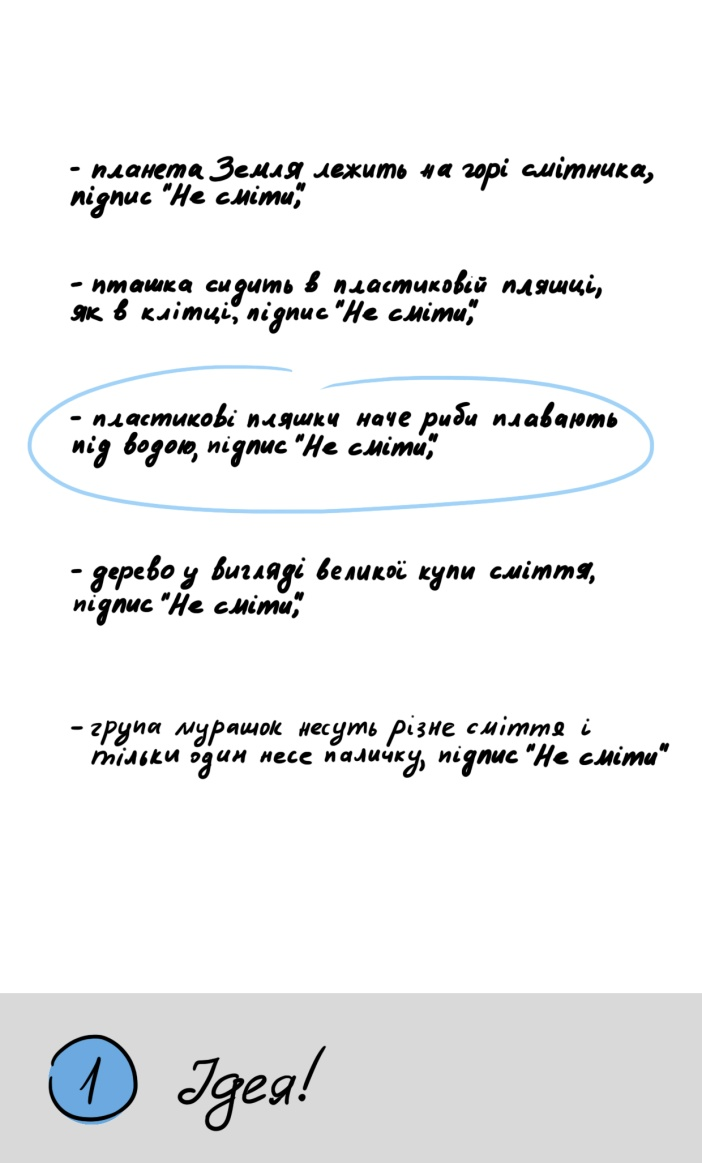 - планета Земля лежить на горі смітника,
підпис "Не сміти",
- пташка сидить в пластиковій пляшці,
як в клітці, підпис "Не сміти",
- пластикові пляшки наче риби плавають
під водою, підпис "Не сміти",
- дерево у вигляді великої купи сміття,
підпис "Не сміти",
- група мурашок несуть різне сміття і
тільки один несе паличку, підпис "Не сміти"
1 Ідея!